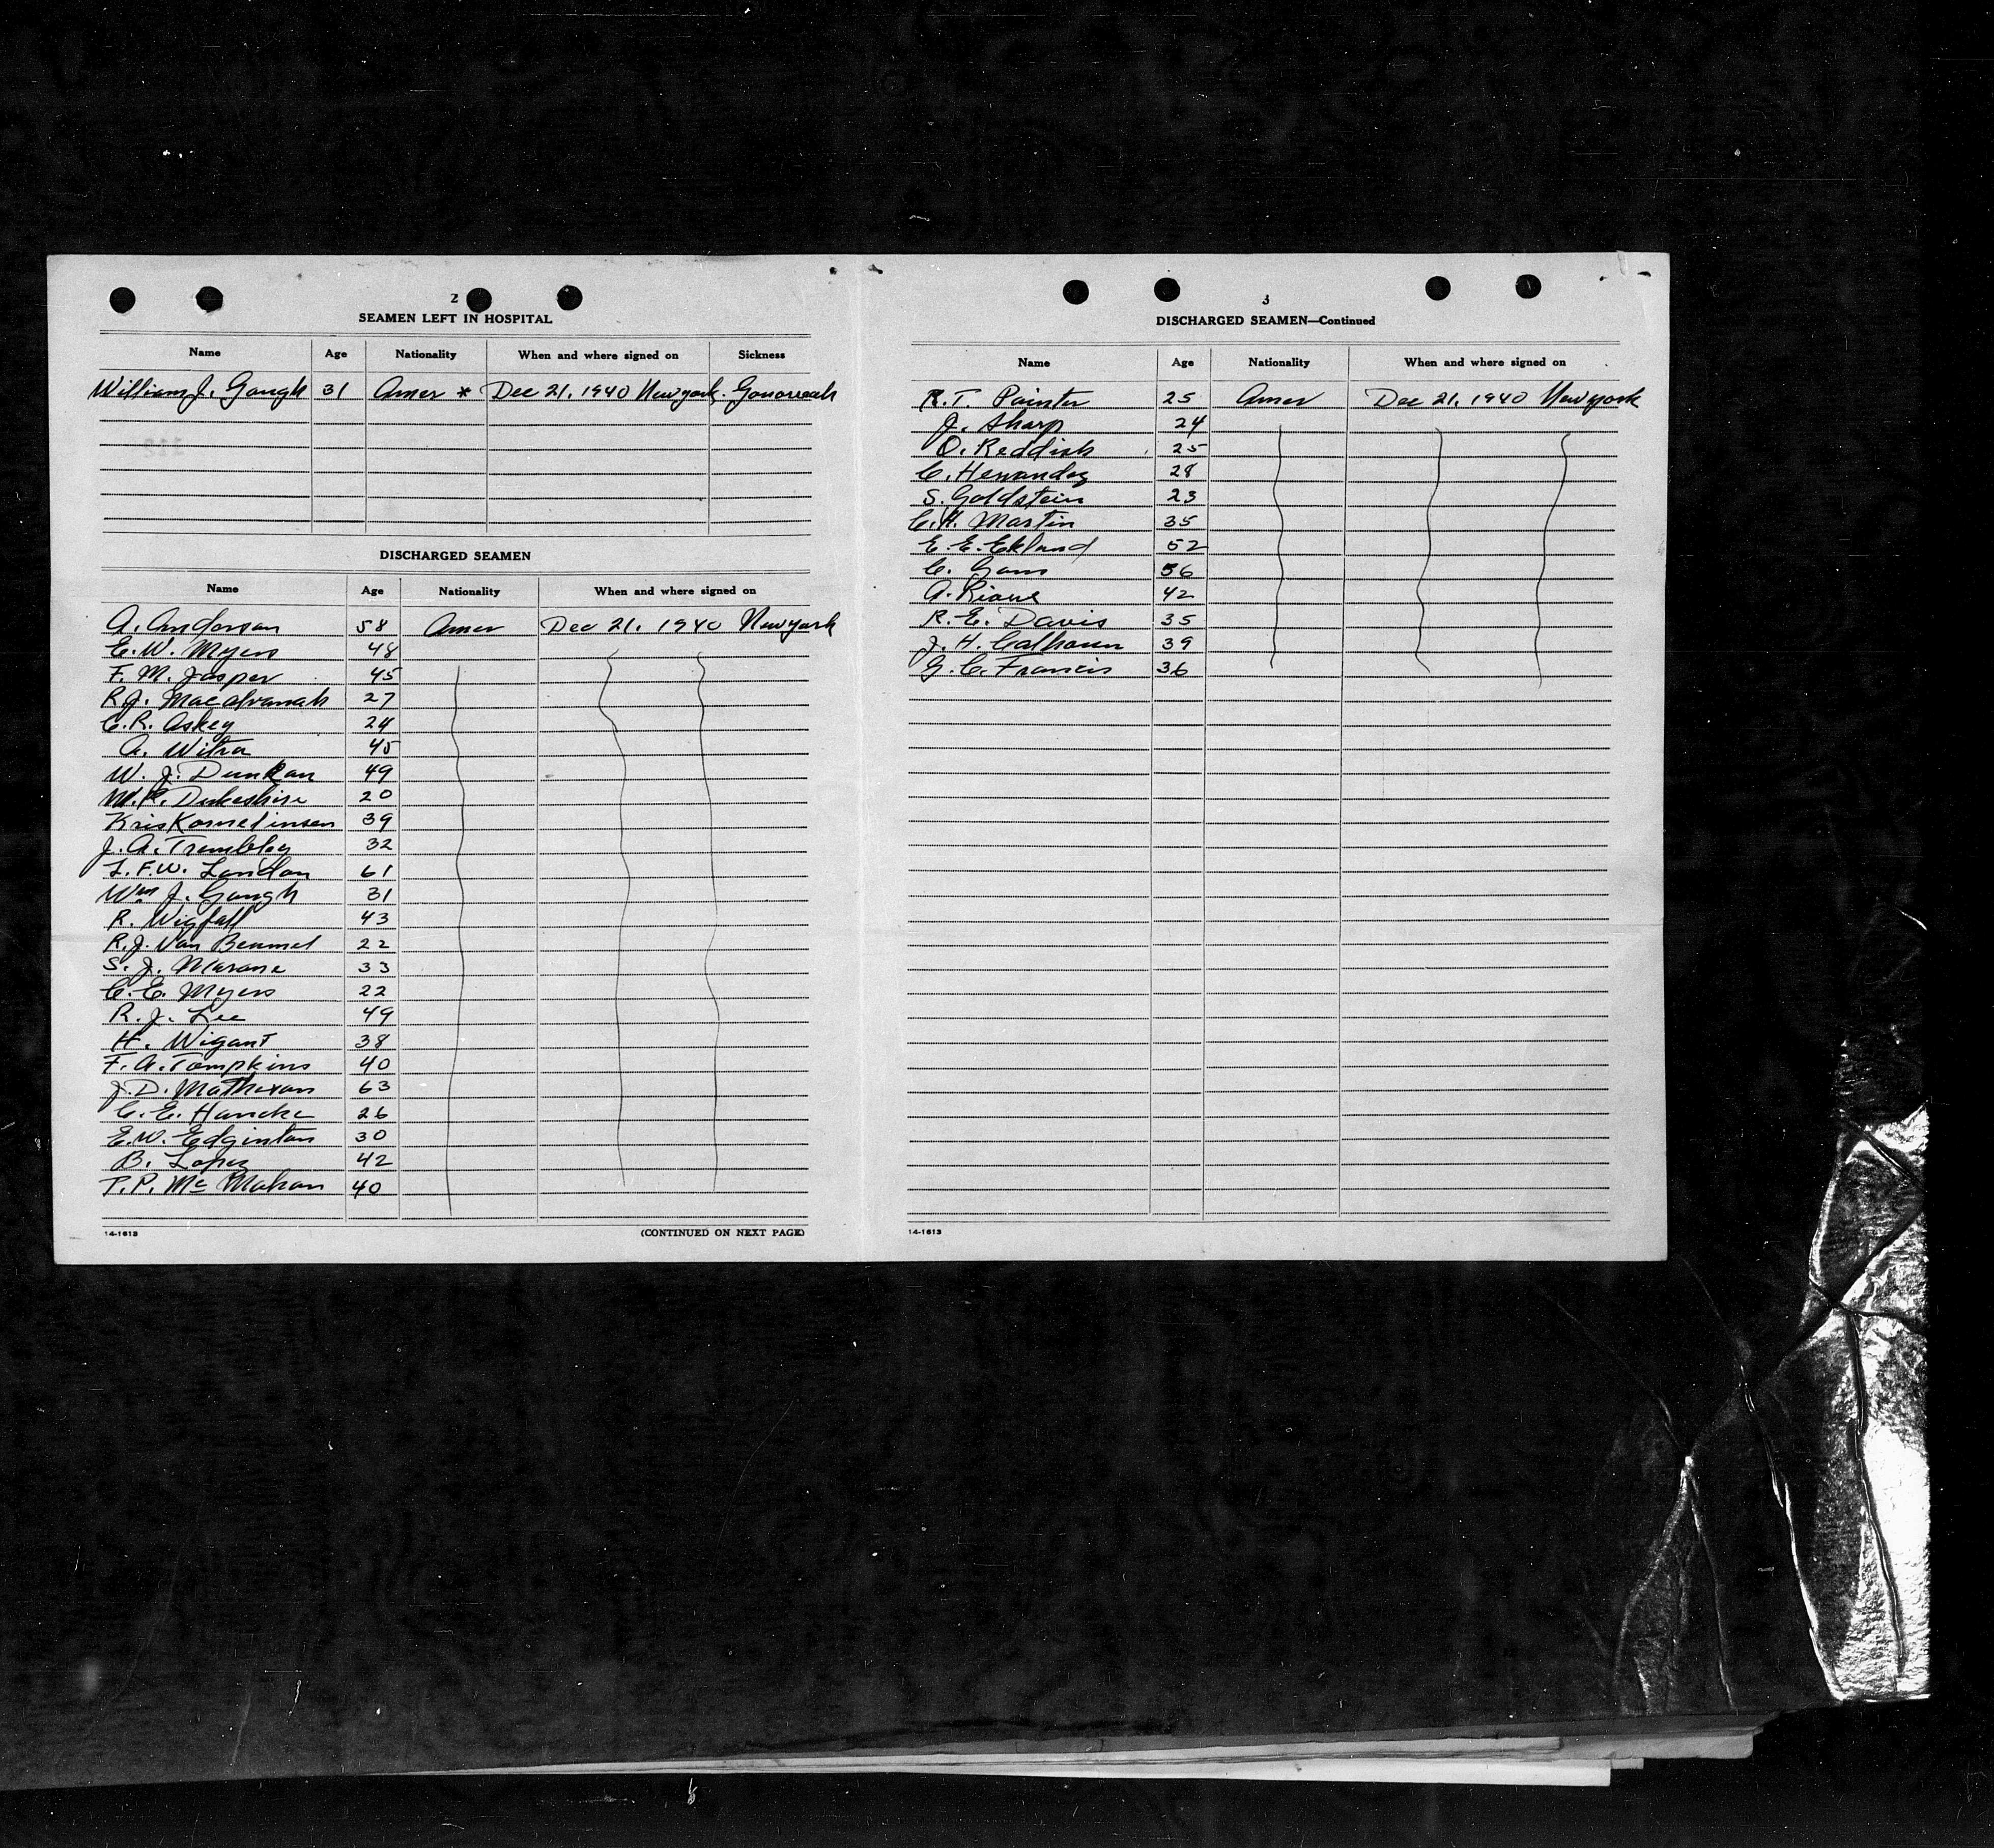 2
SEAMEN LEFT IN HOSPITAL
Name Age Nationality When and where signed on Sickness
William J. Gough 31 Amer * Dec 21, 1940 New york. Gonorreah
DISCHARGED SEAMEN
Name Age Nationality When and where signed on
A. Anderson 58 Amer Dec 21. 1940 New york
C. W. Myers 48
F. M. Jasper 45
R. J. 27
C. R. Askey 24
A. Witra 45
W. J. Dunkan 49
Dukeshire 20
Kris Kornelinsen 39
J. A. Trembley 32
L. F. W. London 61
Wm J. Gough 31
R. Wigfall 43
R. J. Van Bemmel 22
S. J. Marone 33
C. E. Myers 22
R. J. Lee 49
H. Wigant 38
F. A. Tompkins 40
J. D. 63
C. E. Hancke 26
E. W. Edginton 30
B. Lopez 42
P. P. Mc Mahan 40
14-1613 (CONTINUED ON NEXT PAGE)
3
DISCHARGED SEAMEN—Continued
Name Age Nationality When and where signed on
R. T. Painter 25 Amer Dec 21, 1940 New york
J. Sharp 24
O. Reddish 25
C. Hernandez 28
S. Goldstein 23
C. H. Martin 35
E. E. Eklund 52
C. Gans 56
A. 42
R. E. Davis 35
J. H. Calhoun 39
G. C. Francis 36
14-1613